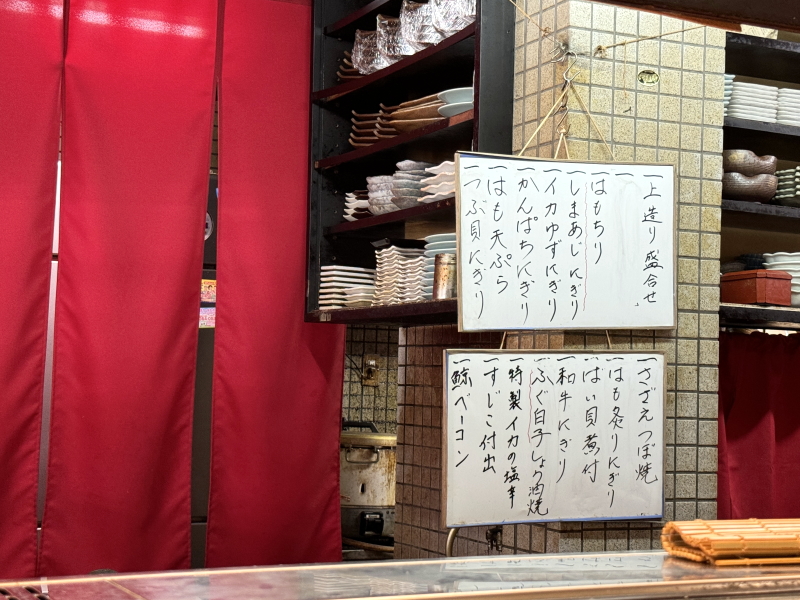 一上造り盛合せ
一
一はもちり
一しまあじにぎり
一イカゆずにぎり
一かんぱちにぎり
一はも天ぷら
一つぶ貝にぎり
一さざえつぼ焼
一はも炙りにぎり
一ばい貝煮付
一和牛にぎり
一ふぐ白子しょう油焼
一特製イカの塩辛
一すじこ付出
一鯨ベーコン